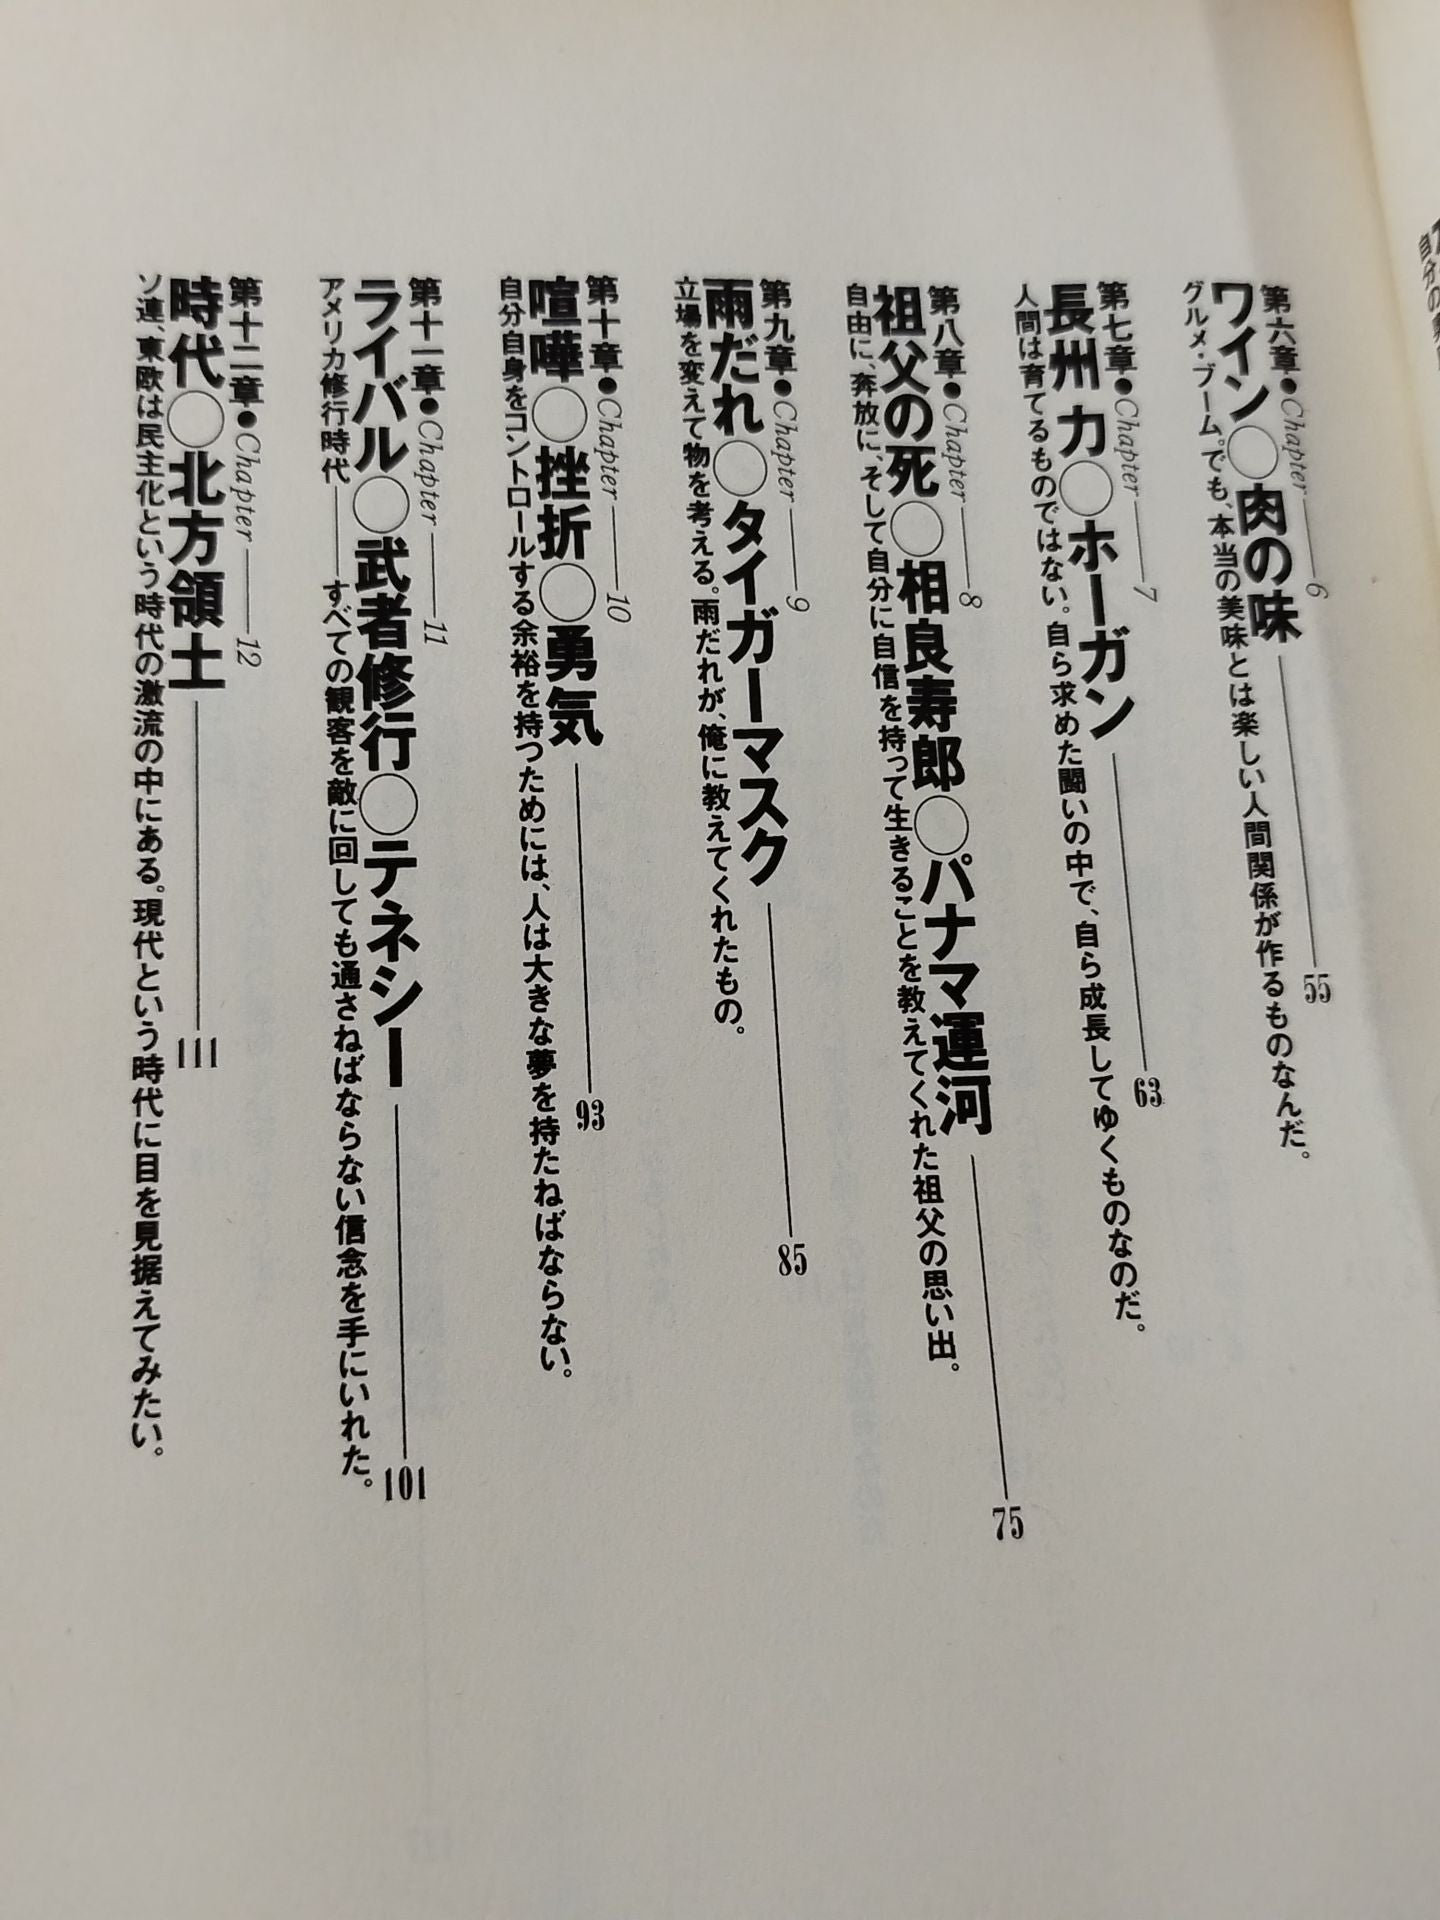 第六章●Chapter 6
ワイン○肉の味 55
グルメ・ブーム。でも、本当の美味とは楽しい人間関係が作るものなんだ。
第七章●Chapter 7
長州 力○ホーガン 63
人間は育てるものではない。自ら求めた闘いの中で、自ら成長してゆくものなのだ。
第八章●Chapter 8
祖父の死○相良寿郎○パナマ運河 75
自由に、奔放に、そして自分に自信を持って生きることを教えてくれた祖父の思い出。
第九章●Chapter 9
雨だれ○タイガーマスク 85
立場を変えて物を考える。雨だれが、俺に教えてくれたもの。
第十章●Chapter 10
喧嘩○挫折○勇気 93
自分自身をコントロールする余裕を持つためには、人は大きな夢を持たねばならない。
第十一章●Chapter 11
ライバル○武者修行○テネシー 101
アメリカ修行時代――すべての観客を敵に回しても通さねばならない信念を手にいれた。
第十二章●Chapter 12
時代○北方領土 111
ソ連、東欧は民主化という時代の激流の中にある。現代という時代に目を見据えてみたい。